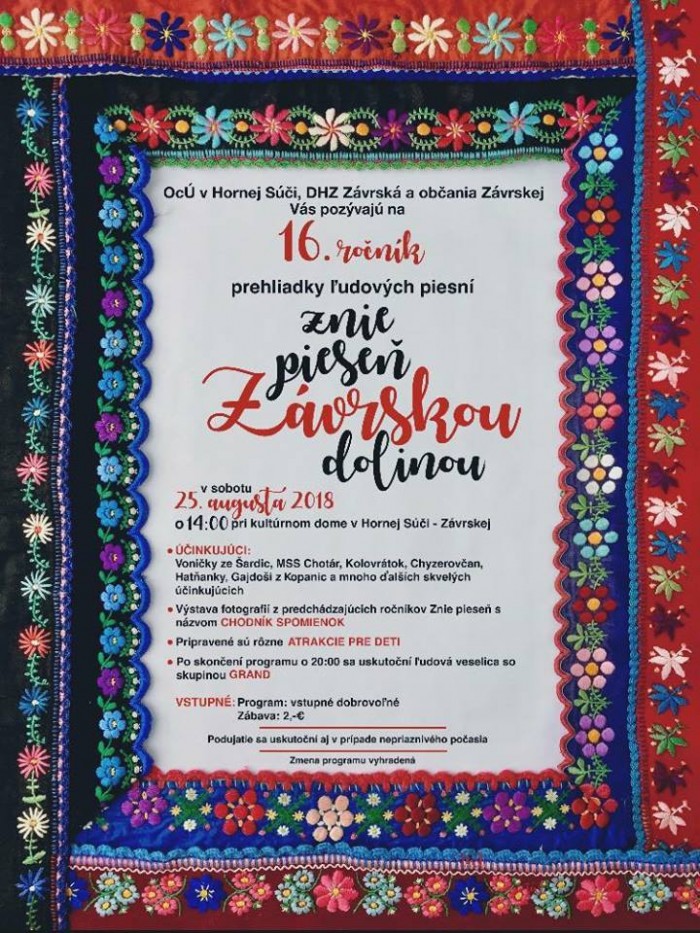 OcÚ v Hornej Súči, DHZ Závrská a občania Závrskej
Vás pozývajú na
16. ročník
prehliadky ľudových piesní
znie
pieseň
Závrskou
dolinou
v sobotu
25. augusta 2018
o 14:00 pri kultúrnom dome v Hornej Súči - Závrskej
• ÚČINKUJÚCI:
Voničky ze Šardic, MSS Chotár, Kolovrátok, Chyzerovčan,
Hatňanky, Gajdoši z Kopanic a mnoho ďalších skvelých
účinkujúcich
• Výstava fotografií z predchádzajúcich ročníkov Znie pieseň s
názvom CHODNÍK SPOMIENOK
• Pripravené sú rôzne ATRAKCIE PRE DETI
• Po skončení programu o 20:00 sa uskutoční ľudová veselica so
skupinou GRAND
VSTUPNÉ: Program: vstupné dobrovoľné
Zábava: 2,-€
Podujatie sa uskutoční aj v prípade nepriaznivého počasia
Zmena programu vyhradená